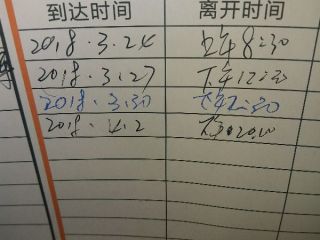 到达时间 离开时间
2018.3.24 上午8:30
2018.3.27 下午12:30
2018.3.30 下午2:30
2018.4.2